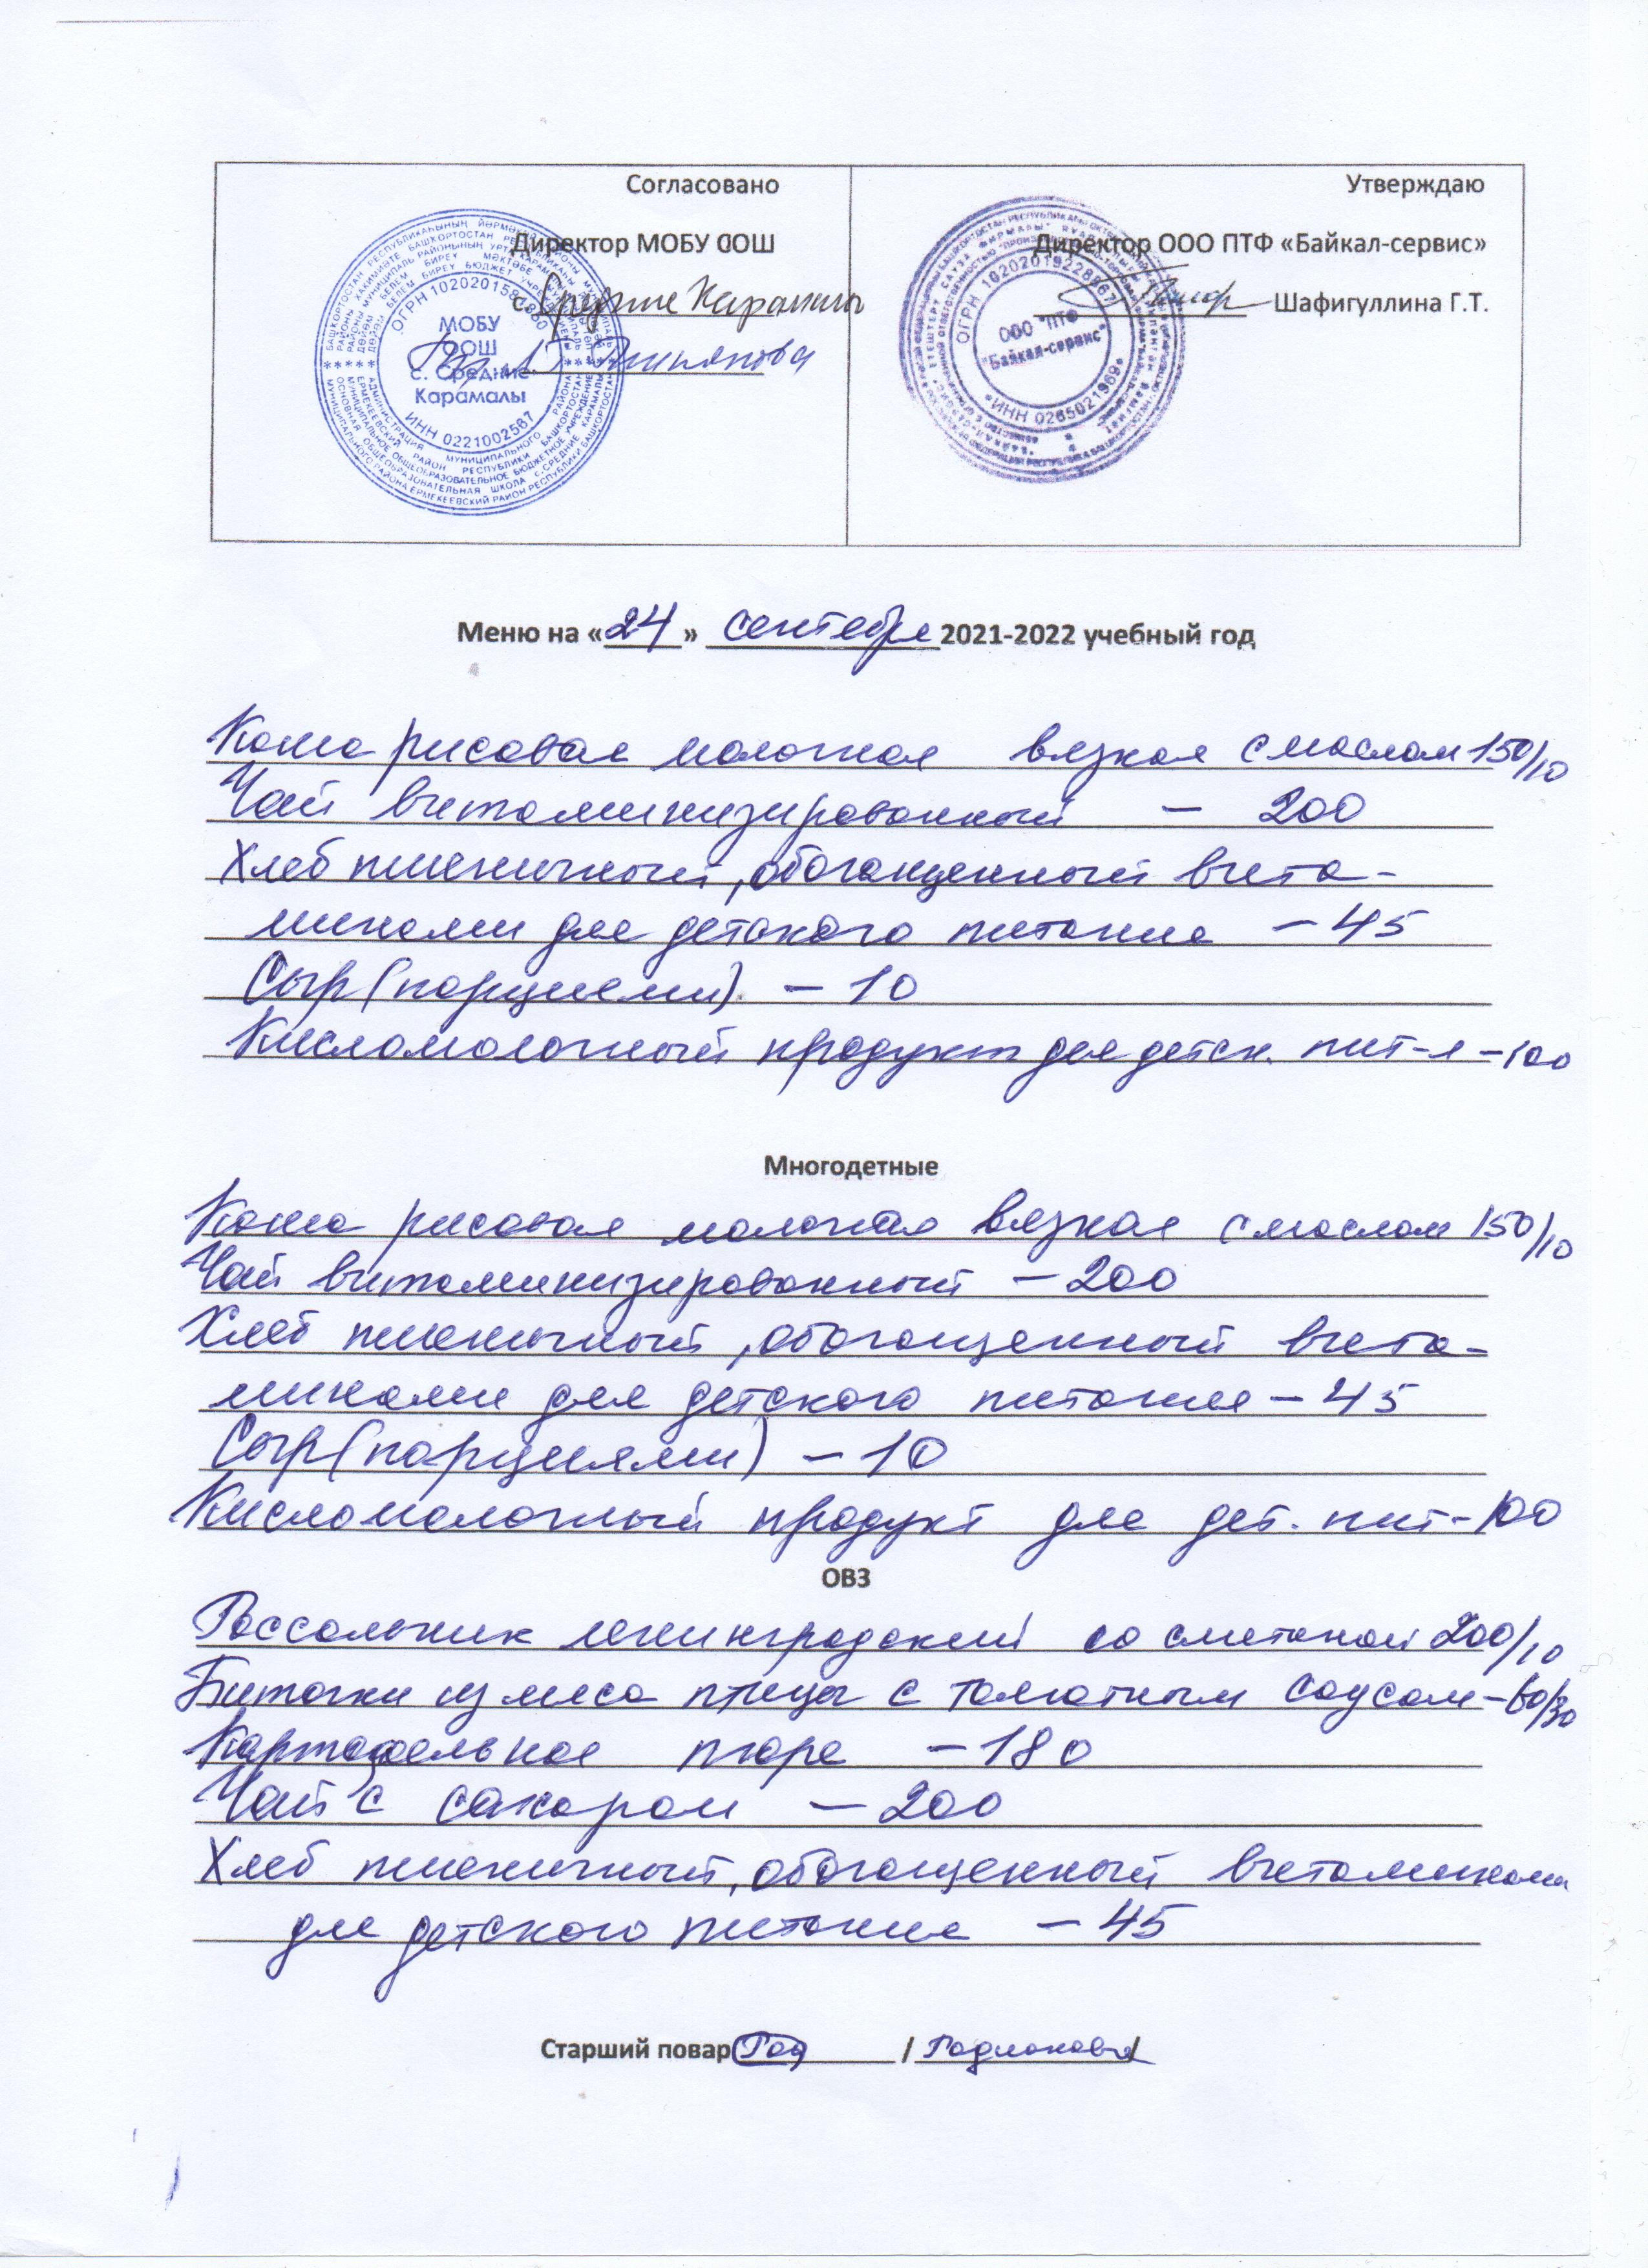 Согласовано
Директор МОБУ ООШ
с. Средние Карамалы
Утверждаю
Директор ООО ПТФ «Байкал-сервис»
Шафигуллина Г.Т.
МОБУ
ООШ
с. Средние
Карамалы
ИНН 0221002587
ООО "ПТФ
"Байкал-сервис"
ИНН 0265021969
Меню на «24» сентября 2021-2022 учебный год
Каша рисовая молочная вязкая с маслом 150/10
Чай витаминизированный – 200
Хлеб пшеничный, обогащенный вита-
минами для детского питания – 45
Сыр (порциями) – 10
Кисломолочный продукт для детск. пит-я – 100
Многодетные
Каша рисовая молочная вязкая с маслом 150/10
Чай витаминизированный – 200
Хлеб пшеничный, обогащенный вита-
минами для детского питания – 45
Сыр (порциями) – 10
Кисломолочный продукт для дет. пит – 100
ОВЗ
Рассольник ленинградский со сметаной 200/10
Биточки из мяса птицы с томатным соусом – 60/30
Картофельное пюре – 180
Чай с сахаром – 200
Хлеб пшеничный, обогащенный витаминами
для детского питания – 45
Старший повар Род / Родионова /